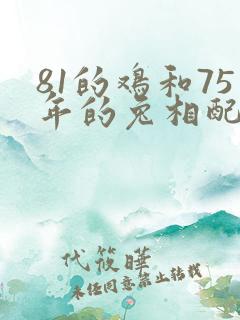 81的鸡和75
年的兔相配
代筱晔
未经同意禁止转载